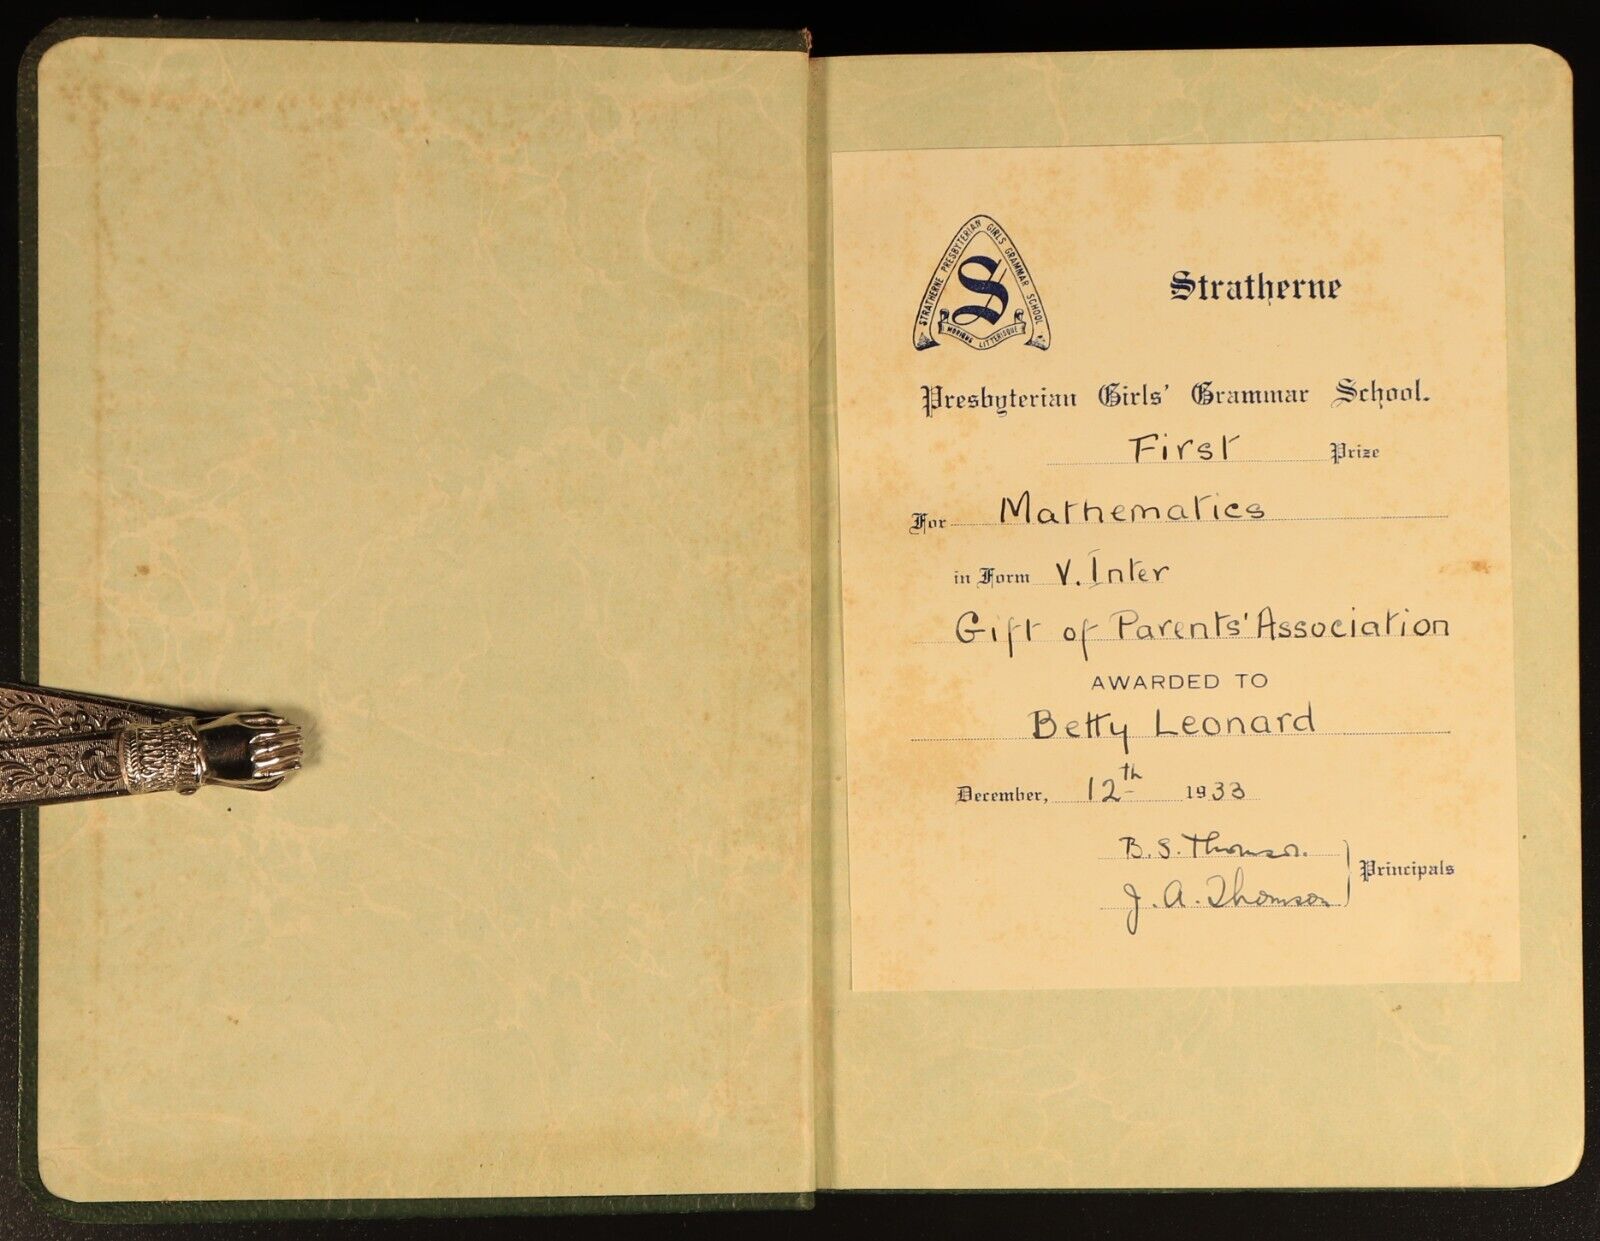 STRATHERNE PRESBYTERIAN GIRLS GRAMMAR SCHOOL
S
MORIBUS LITTERISQUE
Stratherne
Presbyterian Girls' Grammar School.
First Prize
For Mathematics
in Form V. Inter
Gift of Parents' Association
AWARDED TO
Betty Leonard
December, 12th 1933
B. S. Thomson.
J. A. Thomson
Principals